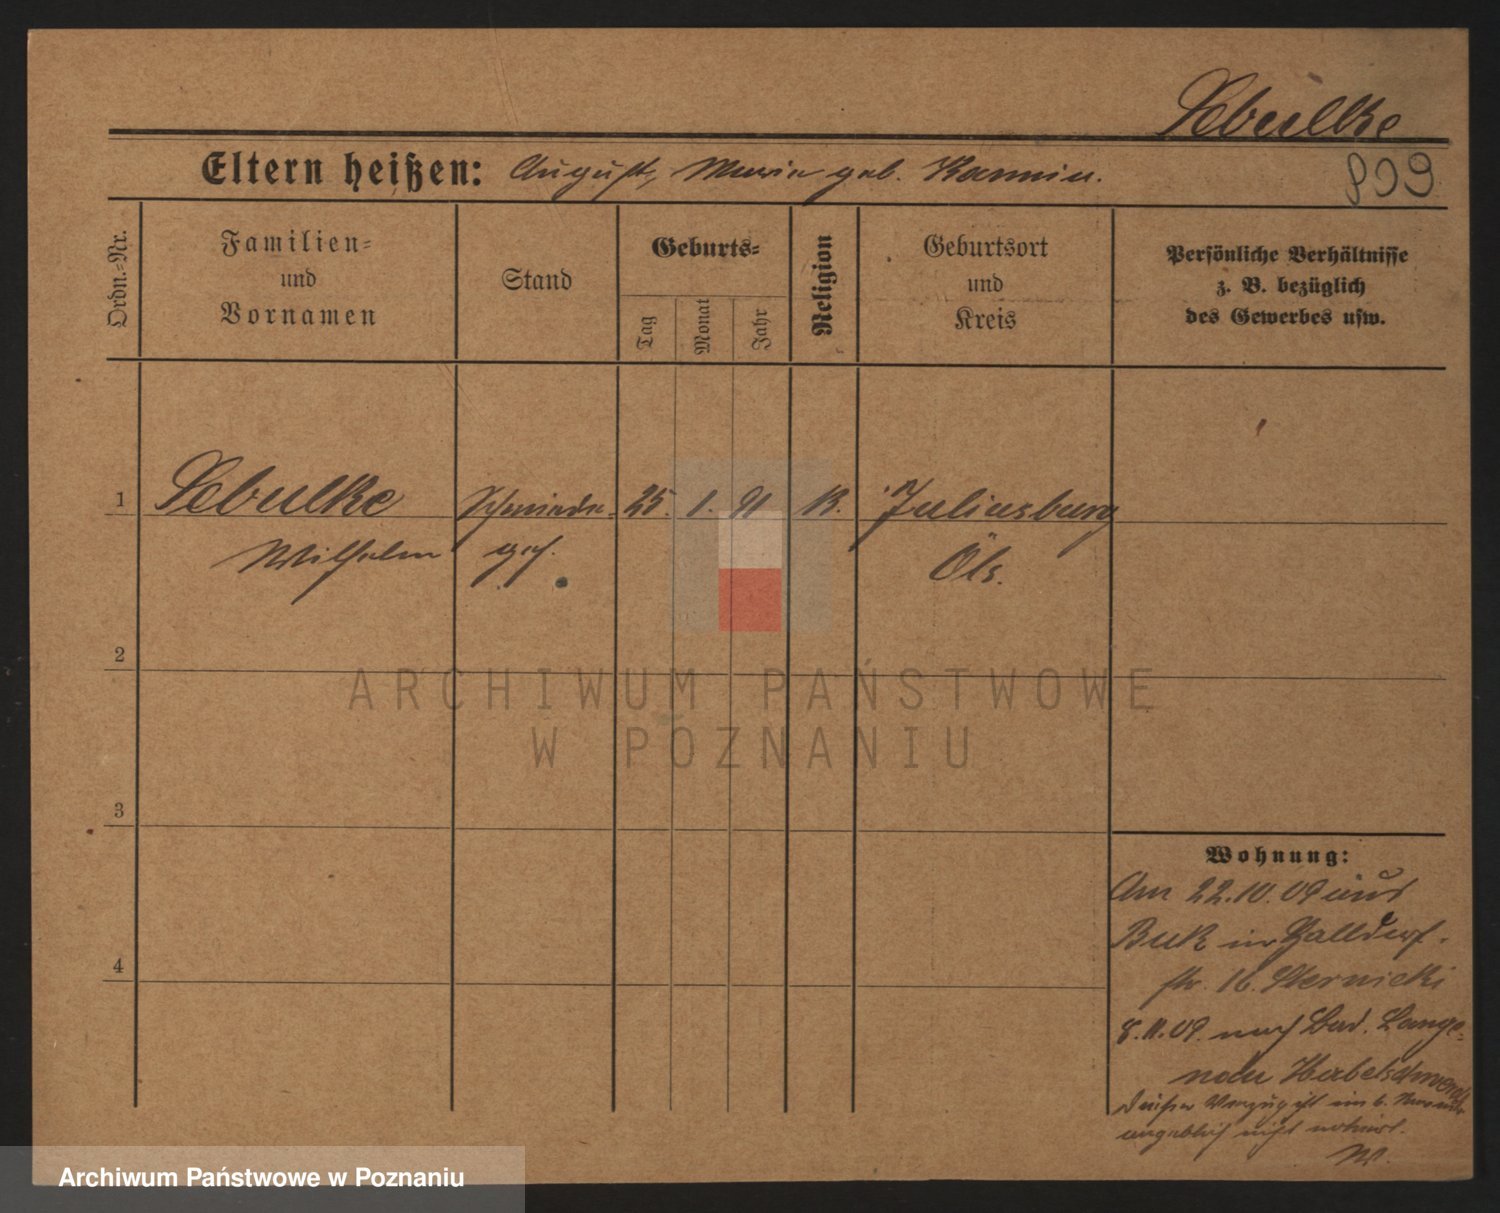 Sebulke
Eltern heißen: August, Maria geb. Kannin.
809
Ordn.=Nr.
Familien=
und
Vornamen
Stand
Geburts=
Tag
Monat
Jahr
Religion
Geburtsort
und
Kreis
Persönliche Verhältnisse
z. B. bezüglich
des Gewerbes usw.
1 Sebulke Schmiede= 25. 1. 91 K. Juliusburg
Wilhelm ges. Öls.
2
3
4
Wohnung:
Am 22.10.09 aus
Buk in Halldorf-
str. 16. Sternicki
8.11.09. nach Bad. Lange=
nau Habelschwerdt
Dieser Verzug ist im
angeblich nicht notiert.
W.
ARCHIWUM PAŃSTWOWE
W POZNANIU
Archiwum Państwowe w Poznaniu